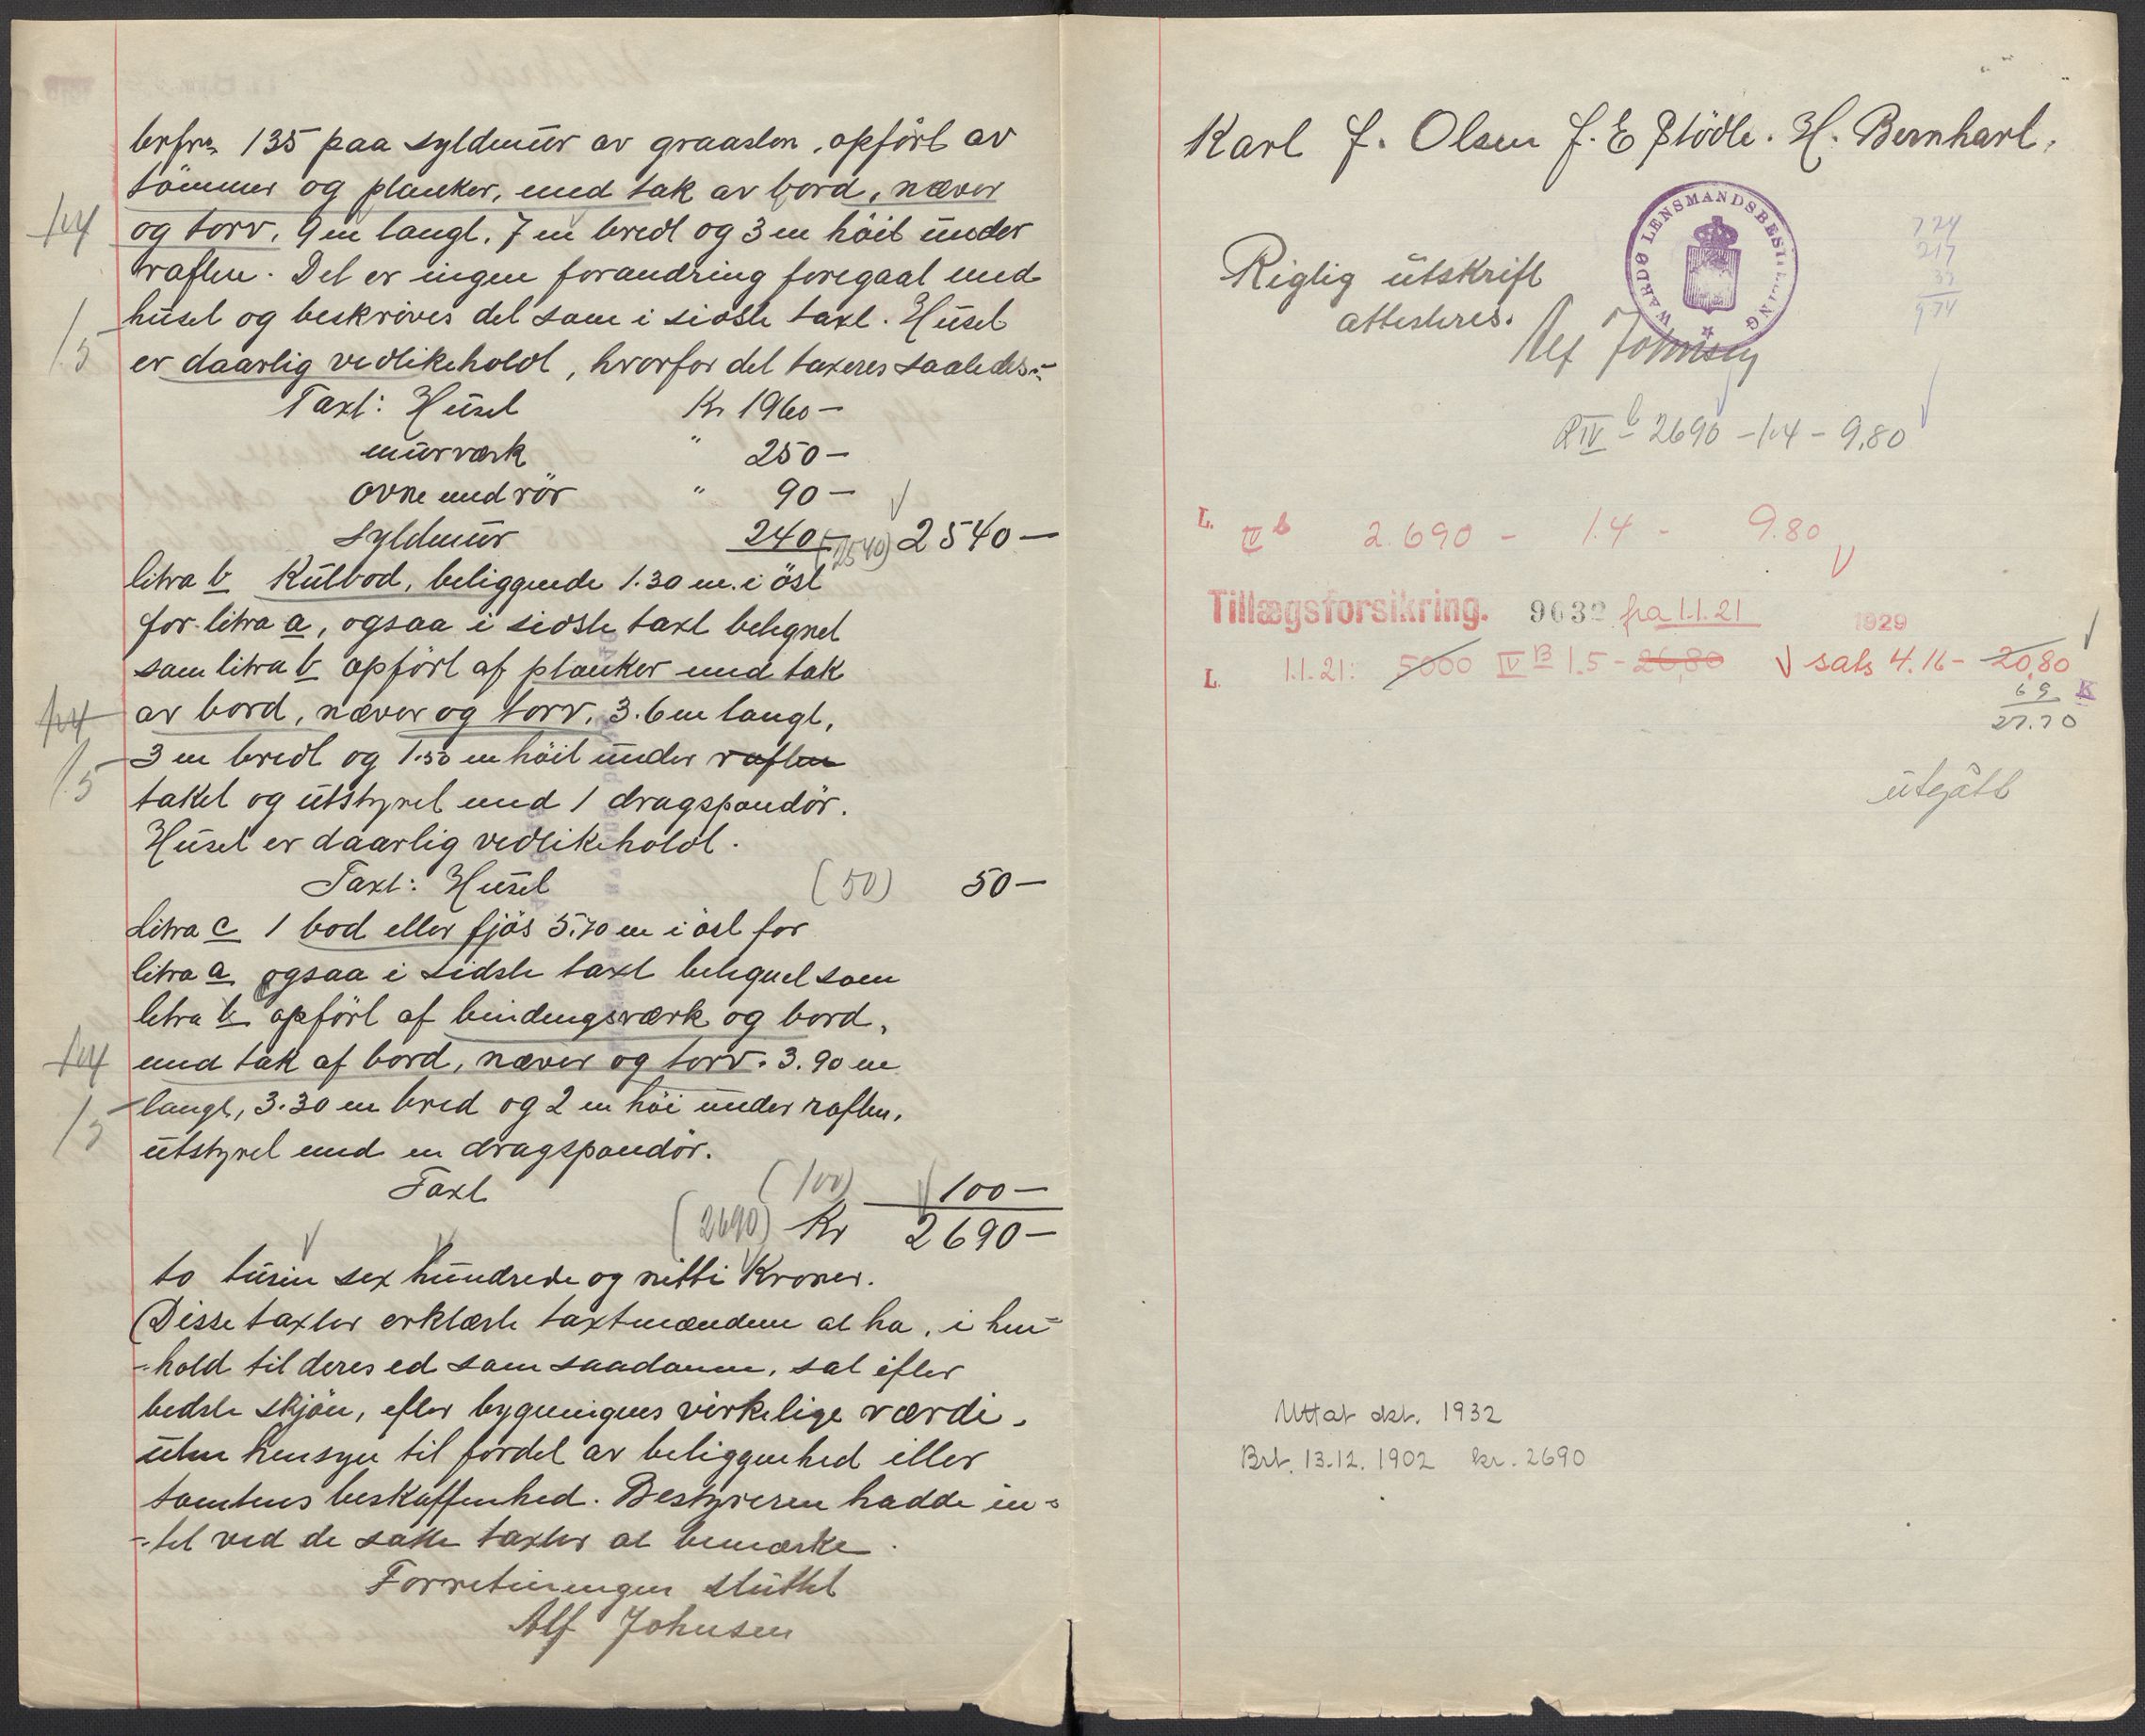 brfr. 135 paa syldmur av graasten, opført av
tömmer og planker, med tak av bord, næver
1.4 og torv. 9 m langt, 7 m bredt og 3 m höit under
raften. Det er ingen forandring foregaat med
1.5 huset og beskrives det som i sidste taxt. Huset
er daarlig vedlikeholdt, hvorfor det taxeres saaledes:-
Taxt: Huset Kr 1960 —
murværk " 250 —
ovne med rör " 90 —
syldmur 240 — (2540) 2540 —
litra b Kulbod, beliggende 1.30 m. i öst
for litra a, ogsaa i sidste taxt betegnet
som litra b opfört af planker med tak
1.4 av bord, næver og torv, 3.6 m langt,
3 m bredt og 1.50 m höit under raften
1.5 taket og utstyret med 1 dragspandör.
Huset er daarlig vedlikeholdt.
Taxt: Huset (50) 50 —
Litra c 1 bod eller fjös 5.70 m i öst for
litra a, ogsaa i sidste taxt betegnet som
litra b opfört af bindingsværk og bord,
1.4 med tak af bord, næver og torv. 3.90 m
1.5 langt, 3.30 m bred og 2 m höi under raften,
utstyret med en dragspandör.
Taxt (100) 100 —
(2690) Kr 2690 —
to tusin sex hundrede og nitti Kroner.
Disse taxter erklærte taxtmændene at ha, i hen-
-hold til deres ed som saadanne, sat efter
bedste skjön, efter bygningens virkelige værdi,
uten hensyn til fordel av beliggenhed eller
tomtens beskaffenhed. Bestyreren hadde in-
-tet ved de satte taxter at bemærke.
Forretningen sluttet
Alf Johnsen
Karl J. Olsen J. E Stödle. H. Bernhart.
WARDØ LENSMANDSBESTILLING
724
217
33
974
Rigtig utskrift
attesteres.
Alf Johnsen
R IV b 2690 - 1.4 - 9,80
L. IV b 2.690 - 1.4 - 9.80
Tillægsforsikring. 9632 fra 1.1.21 1929
L. 1.1.21: 5000 IV B 1.5 - 26,80 sats 4.16 - 20,80
6 9 K
27.70
utgått
Uttat okt. 1932
Brt. 13.12.1902 kr. 2690